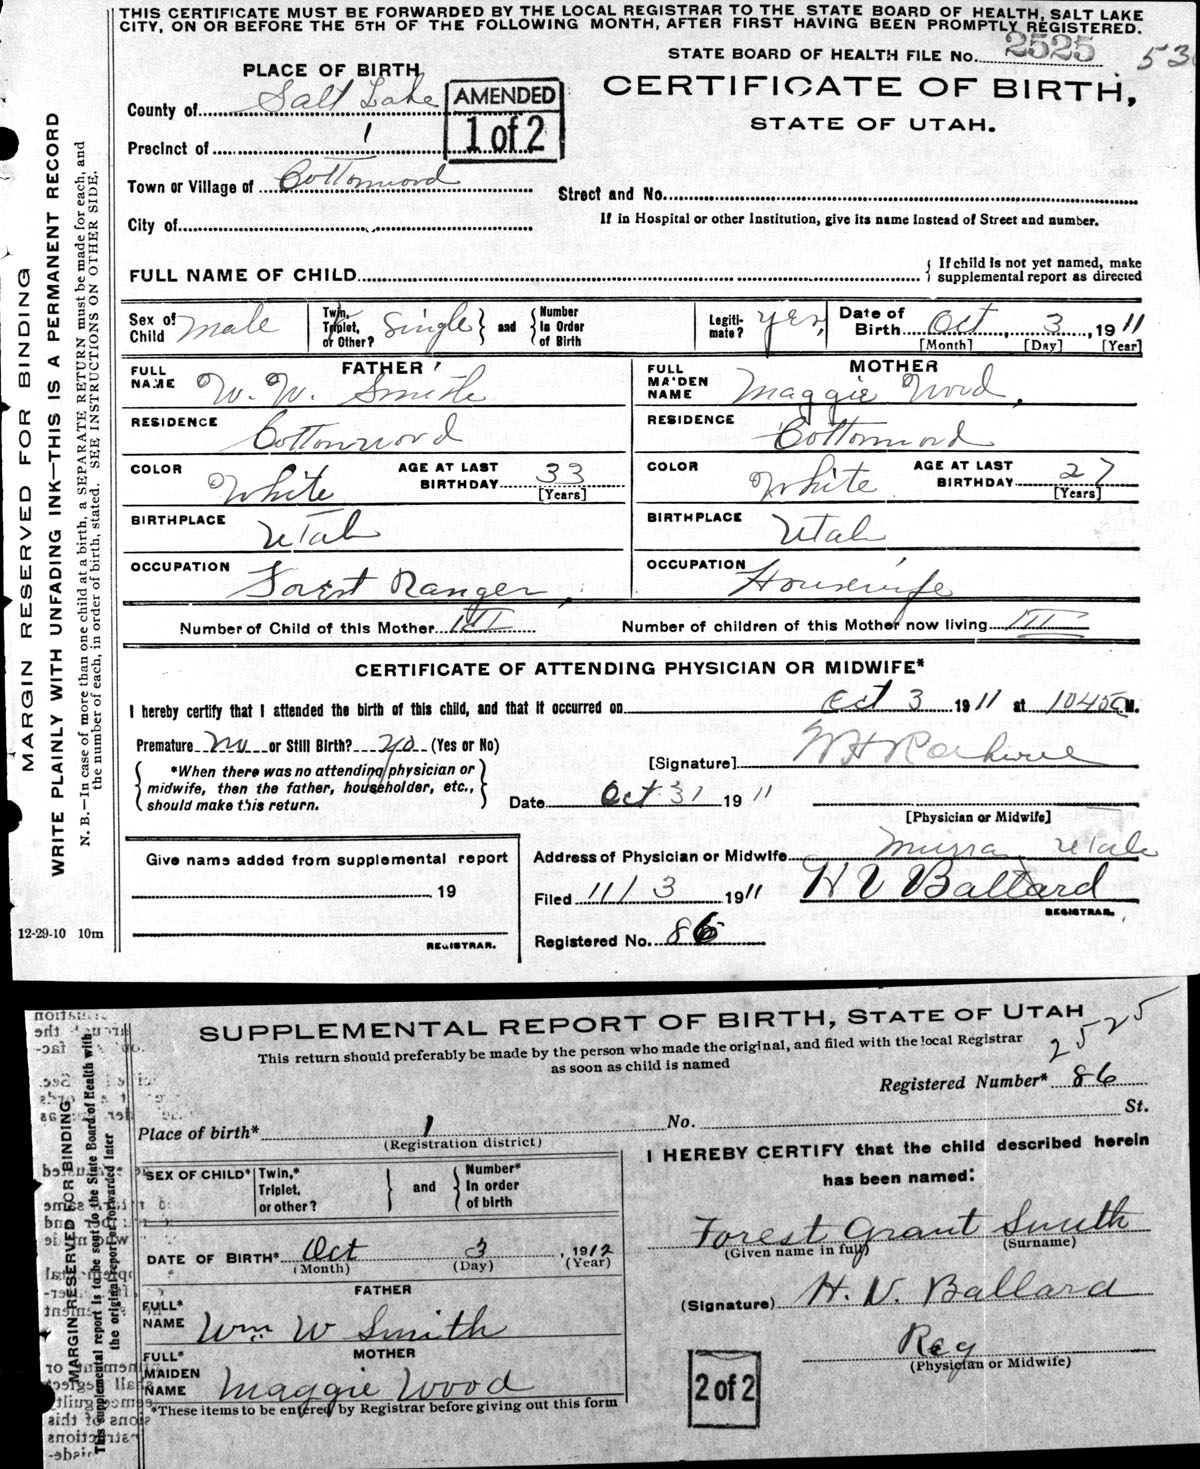 THIS CERTIFICATE MUST BE FORWARDED BY THE LOCAL REGISTRAR TO THE STATE BOARD OF HEALTH, SALT LAKE
CITY, ON OR BEFORE THE 5TH OF THE FOLLOWING MONTH, AFTER FIRST HAVING BEEN PROMPTLY REGISTERED.
STATE BOARD OF HEALTH FILE No. 2525 53
PLACE OF BIRTH
CERTIFICATE OF BIRTH,
STATE OF UTAH.
AMENDED
1 of 2
County of Salt Lake
Precinct of 1
Town or Village of Cottonwood
Street and No.
City of
If in Hospital or other Institution, give its name instead of Street and number.
FULL NAME OF CHILD
If child is not yet named, make
supplemental report as directed
Sex of Child Male
Twin, Triplet, or Other? Single and Number In Order of Birth
Legitimate? Yes,
Date of Birth Oct 3, 1911
[Month] [Day] [Year]
FATHER
FULL NAME W. W. Smith
MOTHER
FULL MAIDEN NAME Maggie Wood,
RESIDENCE Cottonwood
RESIDENCE Cottonwood
COLOR White AGE AT LAST BIRTHDAY 33 [Years]
COLOR White AGE AT LAST BIRTHDAY 27 [Years]
BIRTHPLACE Utah
BIRTHPLACE Utah
OCCUPATION Forest Ranger,
OCCUPATION Housewife
Number of Child of this Mother III
Number of children of this Mother now living III
CERTIFICATE OF ATTENDING PHYSICIAN OR MIDWIFE*
I hereby certify that I attended the birth of this child, and that it occurred on Oct 3 1911 at 1045 M.
Premature No or Still Birth? No (Yes or No)
[Signature] W H
*When there was no attending physician or
midwife, then the father, householder, etc.,
should make this return.
Date Oct 31 1911
[Physician or Midwife]
Give name added from supplemental report
19
REGISTRAR.
Address of Physician or Midwife Murra Utah
Filed 11/3 1911 H V Ballard
REGISTRAR.
Registered No. 86
MARGIN RESERVED FOR BINDING
WRITE PLAINLY WITH UNFADING INK—THIS IS A PERMANENT RECORD
N. B.—In case of more than one child at a birth, a SEPARATE RETURN must be made for each, and
the number of each, in order of birth, stated. SEE INSTRUCTIONS ON OTHER SIDE.
12-29-10 10m
SUPPLEMENTAL REPORT OF BIRTH, STATE OF UTAH
This return should preferably be made by the person who made the original, and filed with the local Registrar
as soon as child is named
2525
Registered Number* 86
Place of birth* 1 No. St.
(Registration district)
SEX OF CHILD* Twin,* Triplet, or other? and Number* In order of birth
DATE OF BIRTH* Oct 3, 1912
(Month) (Day) (Year)
FATHER
FULL* NAME Wm W Smith
MOTHER
FULL* MAIDEN NAME Maggie Wood
*These items to be entered by Registrar before giving out this form
I HEREBY CERTIFY that the child described herein
has been named:
Forest Grant Smith
(Given name in full) (Surname)
(Signature) H. V. Ballard
Reg
(Physician or Midwife)
2 of 2
MARGIN RESERVED FOR BINDING
This supplemental report is to be sent to the State Board of Health with
the original report or forwarded later